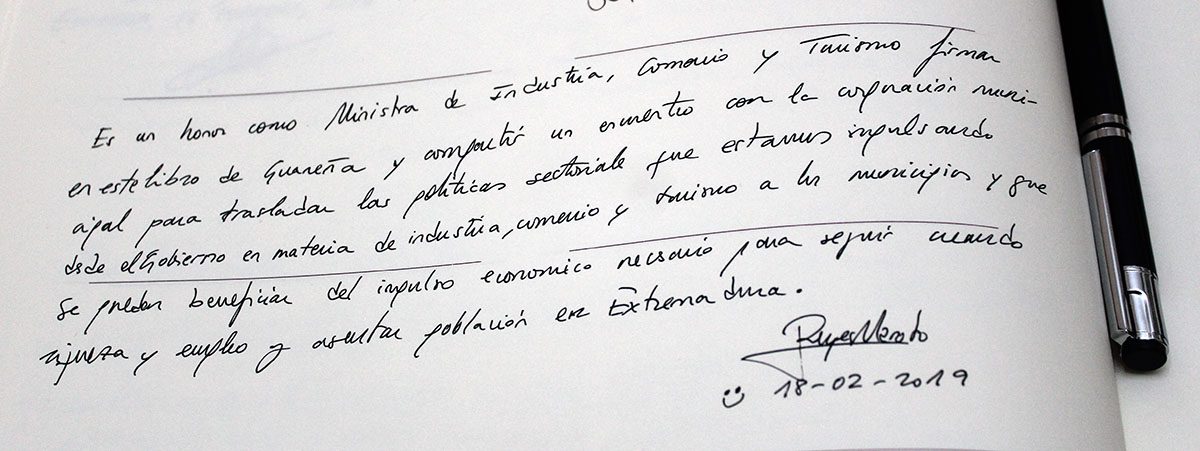 Es un honor como Ministra de Industria, Comercio y Turismo firmar
en este libro de Guareña y compartir un encuentro con la corporación muni-
cipal para trasladar las políticas sectoriale que estamos impulsando
desde el Gobierno en materia de industria, comercio y turismo a los municipios y que
se puedan beneficiar del impulso economico necesario para seguir creando
riqueza y empleo y asentar población en Extremadura.
Reyes Maroto
18-02-2019